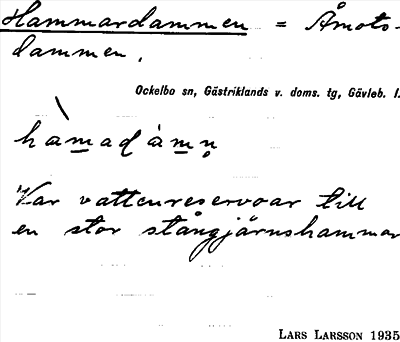 Hammardammen = Åmots-
dammen.
Ockelbo sn, Gästriklands v. doms. tg, Gävleb. l.
hàmadàmn̥
Var vattenreservoar till
en stor stångjärnshammar
LARS LARSSON 1935